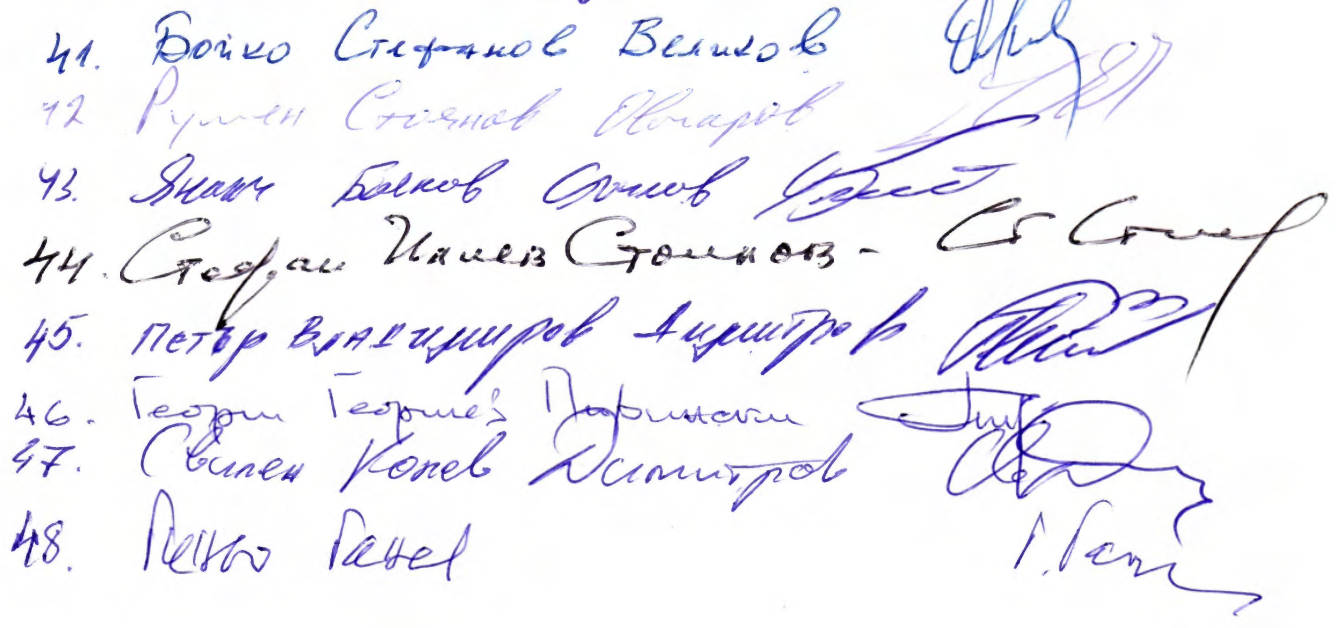 41. Бойко Стефанов Великов
42 Румен Стоянов Овчаров
43. Янаки Боянов Стоилов
44. Стефан Стоилов - Ст Стоилов
45. Петър Владимиров Димитров
46. Георги Георгиев Пирински
47. Свилен Колев Димитров
48. Ганев Г. Ганев